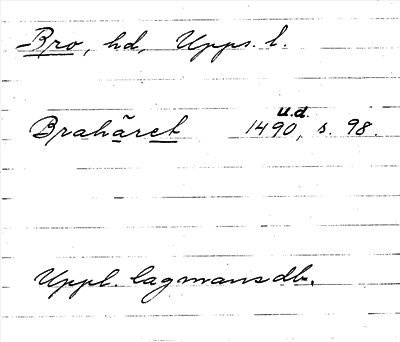 Bro, hd, Upps. l.
u.d.
Brahäret 1490, s. 98.
Uppl. lagmansdb.